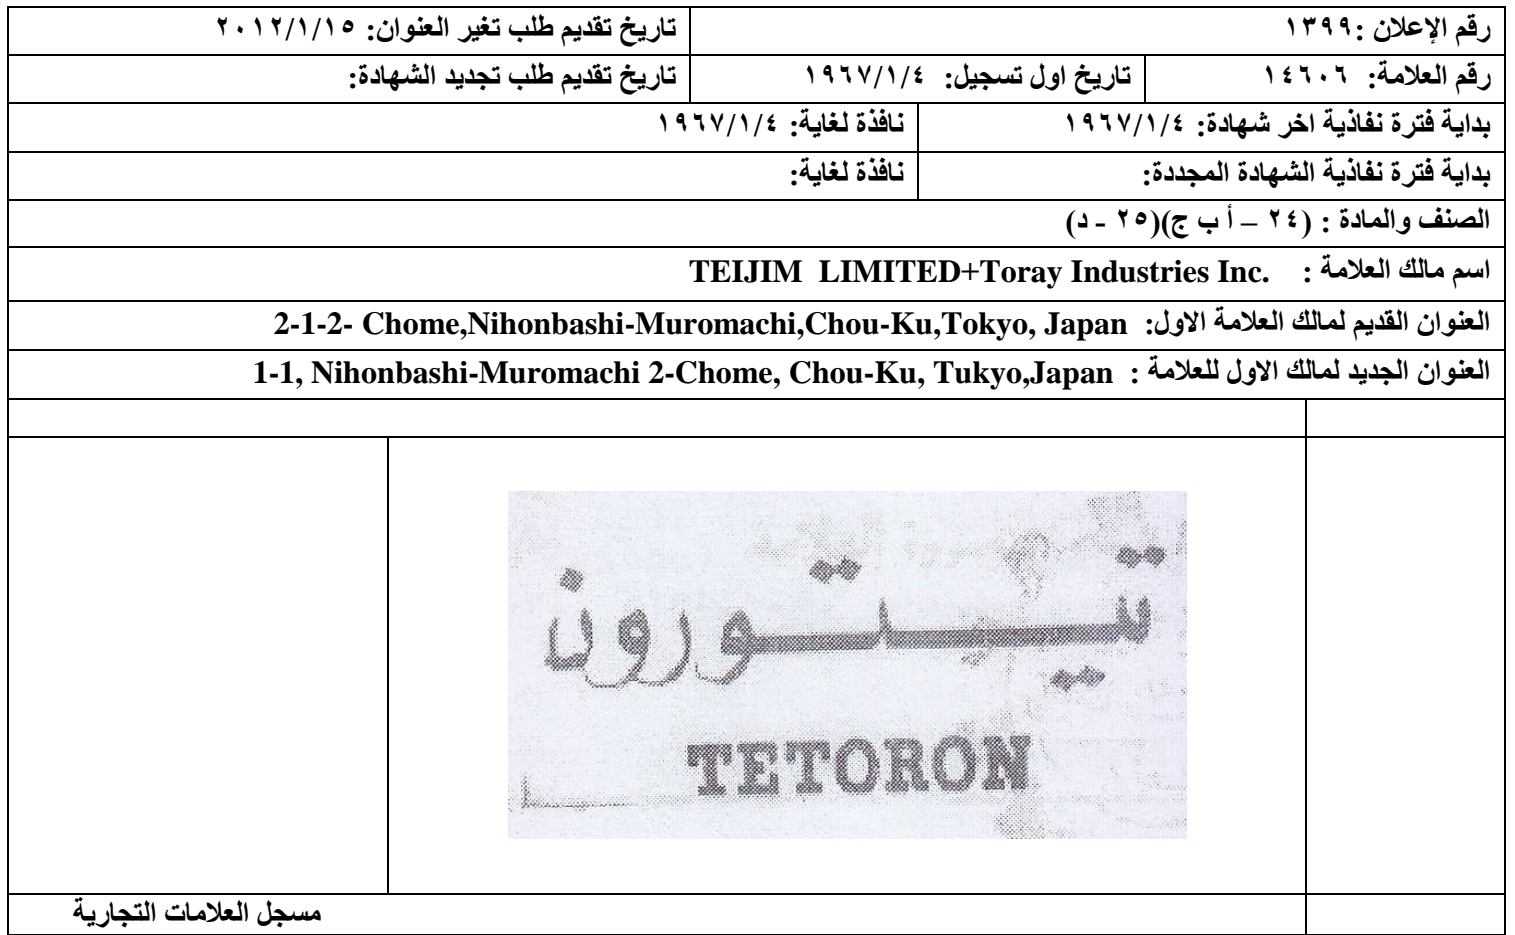 رقم الإعلان :١٣٩٩ تاريخ تقديم طلب تغير العنوان: ٢٠١٢/١/١٥
رقم العلامة: ١٤٦٠٦ تاريخ اول تسجيل: ١٩٦٧/١/٤ تاريخ تقديم طلب تجديد الشهادة:
بداية فترة نفاذية اخر شهادة: ١٩٦٧/١/٤ نافذة لغاية: ١٩٦٧/١/٤
بداية فترة نفاذية الشهادة المجددة: نافذة لغاية:
الصنف والمادة : (٢٤ – أ ب ج)(٢٥ - د)
اسم مالك العلامة : TEIJIM LIMITED+Toray Industries Inc.
العنوان القديم لمالك العلامة الاول: 2-1-2- Chome,Nihonbashi-Muromachi,Chou-Ku,Tokyo, Japan
العنوان الجديد لمالك الاول للعلامة : 1-1, Nihonbashi-Muromachi 2-Chome, Chou-Ku, Tukyo,Japan
تيتورون
TETORON
مسجل العلامات التجارية